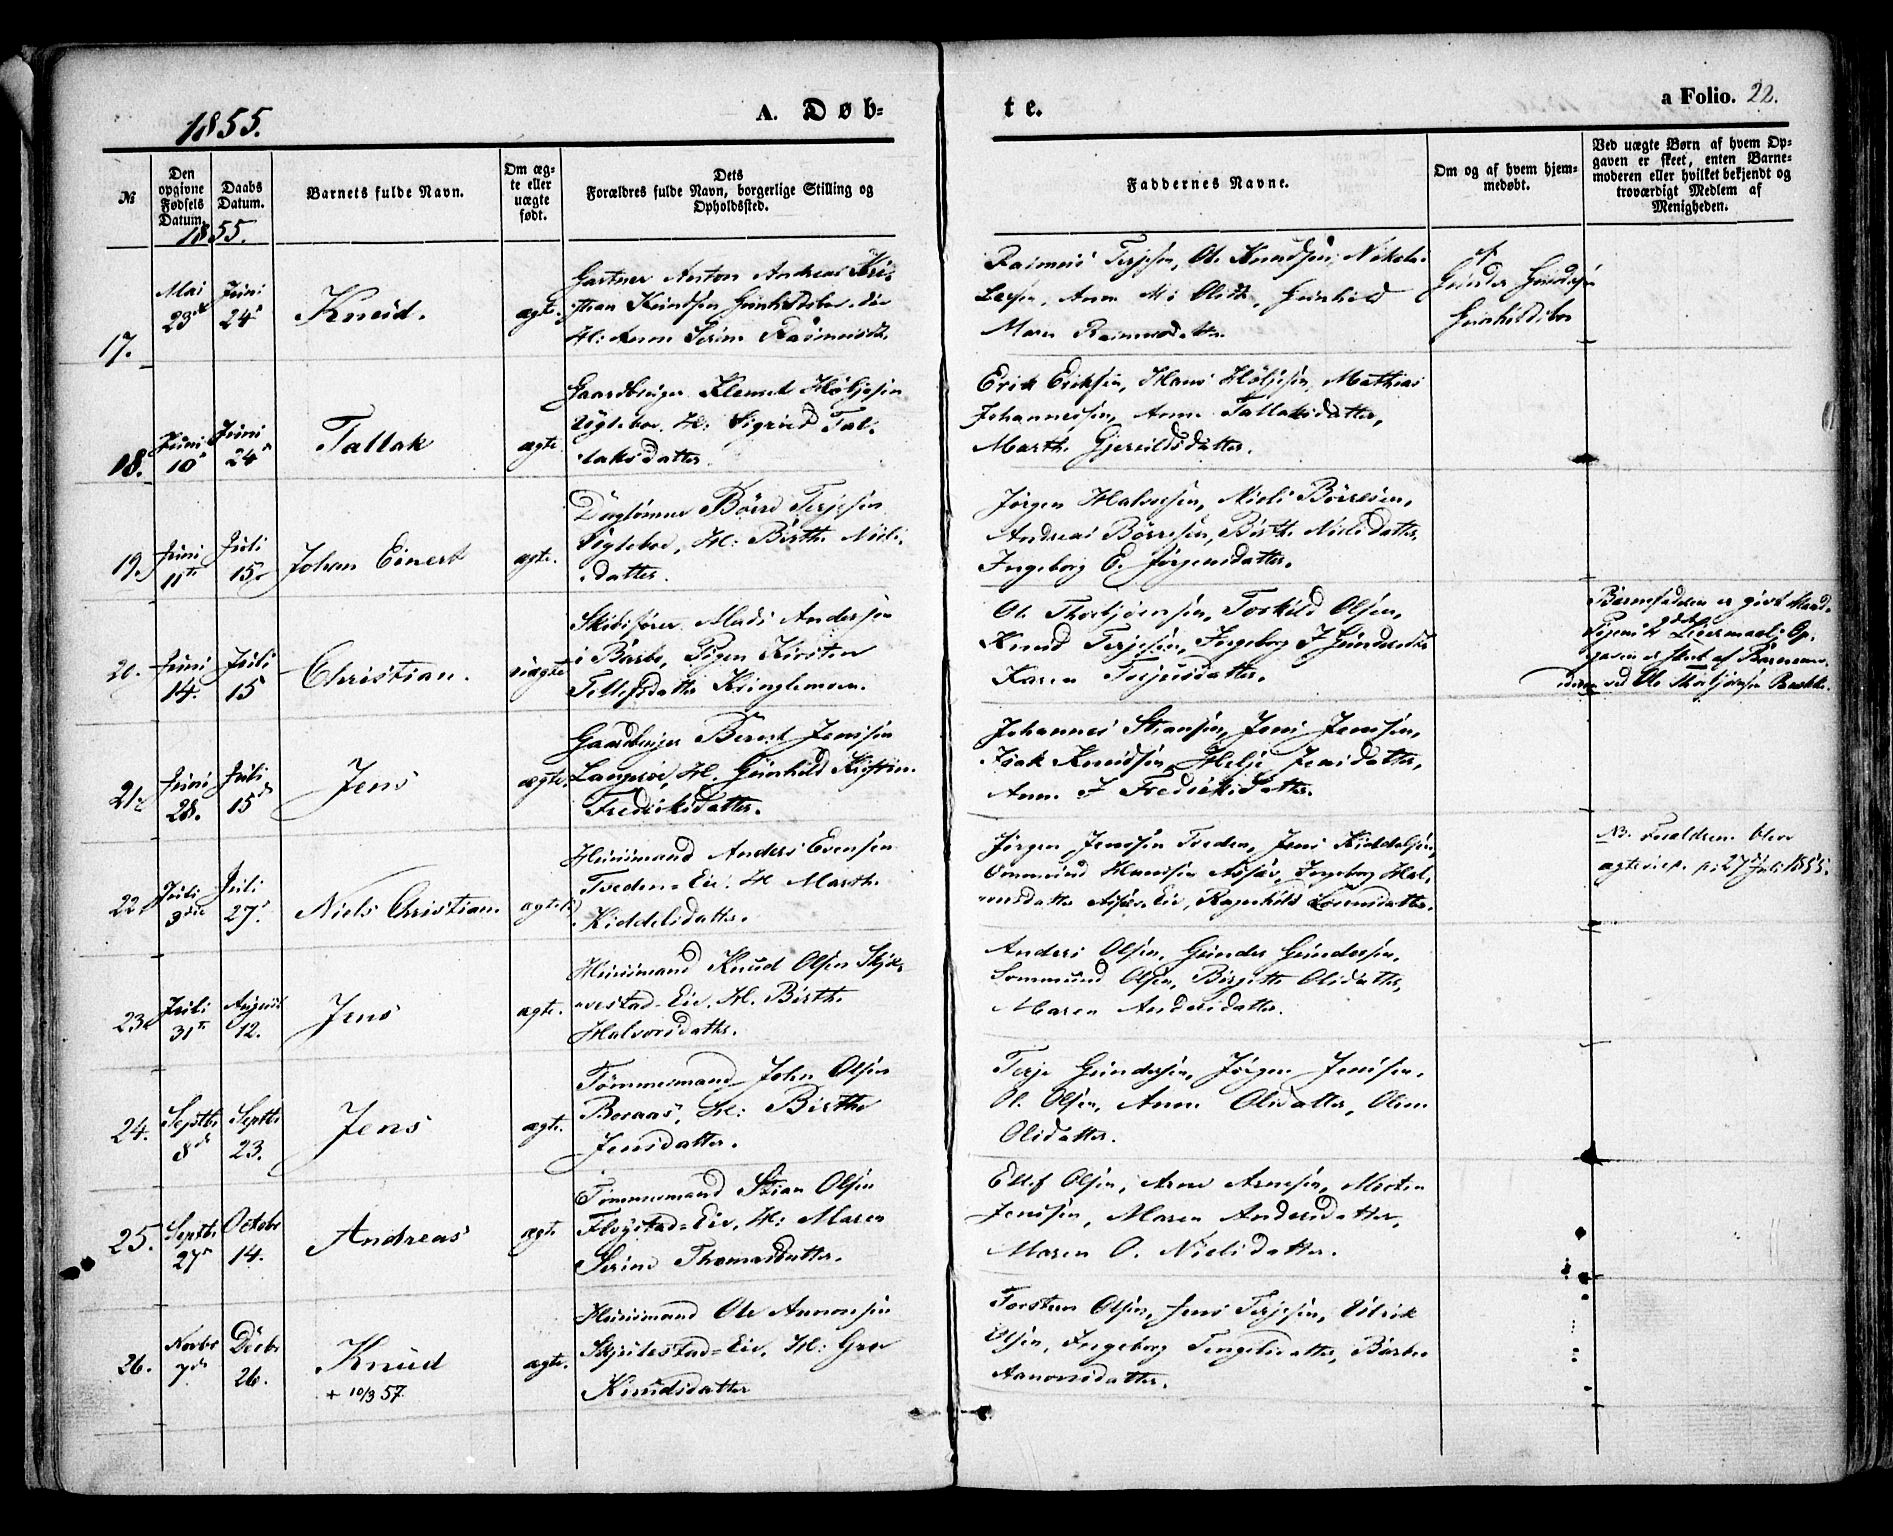 1855.
A. Døb-
te.
a Folio. 22.
№
Den opgivne Fødsels Datum.
Daabs Datum.
1855.
Barnets fulde Navn.
Om ægte eller uægte født.
Dets
Forældres fulde Navn, borgerlige Stilling og
Opholdssted.
Faddernes Navne.
Om og af hvem hjemmedøbt.
Ved uægte Børn af hvem Opgaven er skeet, enten Barnemoderen eller hvilket bekjendt og troværdigt Medlem af Menigheden.
17.
Mai 23de
Juni 24de
Knud.
ægte.
Gartner Anton Andreas Kri-
sthan Knudsen
H: Anne Serine Rasmusdtr
Rasmus Terjesen, Ole Knudsen, Nikolai
Larsen, Anne M: Olsdtr, Gunhild
Maren Rasmusdatter
Gunder Gundersen
18.
Juni 10de
Juni 24de
Tallak
ægte
Gaardbruger Klemet Høljesen
Ugleboe, H: Sigrid Tal-
laksdatter.
Erik Eriksen, Hans Høljesen, Mathias
Johannessen, Anne Tallaksdatter,
Marthe Gjeruldsdatter.
19.
Juni 11te
Juli 15de
Johan Einert
ægte.
Dagleiner Børre Terjesen
Ugleboe, H: Birthe Niels-
datter.
Jørgen Halvorsen, Niels Børresen,
Andreas Børresen, Birthe Nielsdatter,
Ingeborg E. Jørgensdatter.
20.
Juni 14.
Juli 15
Christian.
uægte
Skibsfører Mads Andersen
i Barbo, Pigen Kirsten
Tellefsdatter Kringlemoen.
Ole Thorbjørnsen, Torkild Olsen,
Knud Terjesen, Ingeborg J Gundersdtr
Karen Terjesdatter.
Barnefaderen er givt Mand.
Pigens 2det Leiermaal; Op-
gaven er skeet af Barnemo-
deren ved Ole Thorbjørnsen
21.
Juni 28.
Juli 15de
Jens
ægte.
Gaardbruger Bernt Jenssen
Langsøe, H. Gunhild Kristin
Fredriksdatter.
Johannes Stiansen, Jens Jenssen,
Isak Knudsen, Helje Jensdatter,
Anne J Fredriksdatter.
22.
Juli 3die
Juli 27de
Niels Christian.
ægte
Huusmand Anders Evensen
Tveden-Eie. H Marthe
Kiddelsdatter.
Jørgen Jenssen Tveden, Jens Kiddelsen,
Ommund Hansen Assæv, Ingeborg Hal-
vorsdatter Assæv-Eie, Ragnhild
NB. Forældrene bleve
ægteviede på 27de Juli 1855.
23.
Juli 31te
August 12.
Jens
ægte.
Huusmand Knud Olsen Skjul-
vestad-Eie. H. Birthe
Halvorsdatter.
Anders Olsen, Gunder Gundersen,
Sommund Olsen, Birgitte Olsdatter,
Maren Andersdatter.
24.
Septbr 8de
Septbr 23.
Jens
ægte.
Tømmermand John Olsen
Boraas, H: Birthe
Jensdatter.
Terje Gundersen, Jørgen Jenssen,
Ole Olsen, Anne Olsdatter, Oline
Olsdatter.
25.
Septbr 27de
Octobr 14.
Andreas
ægte
Tømmermand Stian Olsen
Fløystad-Eie, H: Maren
Serine Thomasdatter.
Ellef Olsen, Arne Arnesen, Morten
Jenssen, Maren Andersdatter,
Maren O. Nielsdatter.
26.
Novbr 7de
Decbr 26.
Knud
+ 10/3 57.
ægte.
Huusmand Ole Aanonsen
Skjulestad-Eie. H: Gro
Knudsdatter
Torsten Olsen, Jens Terjesen, Ulrik
Olsen, Ingeborg Tengelsdatter, Barbro
Aanonsdatter.